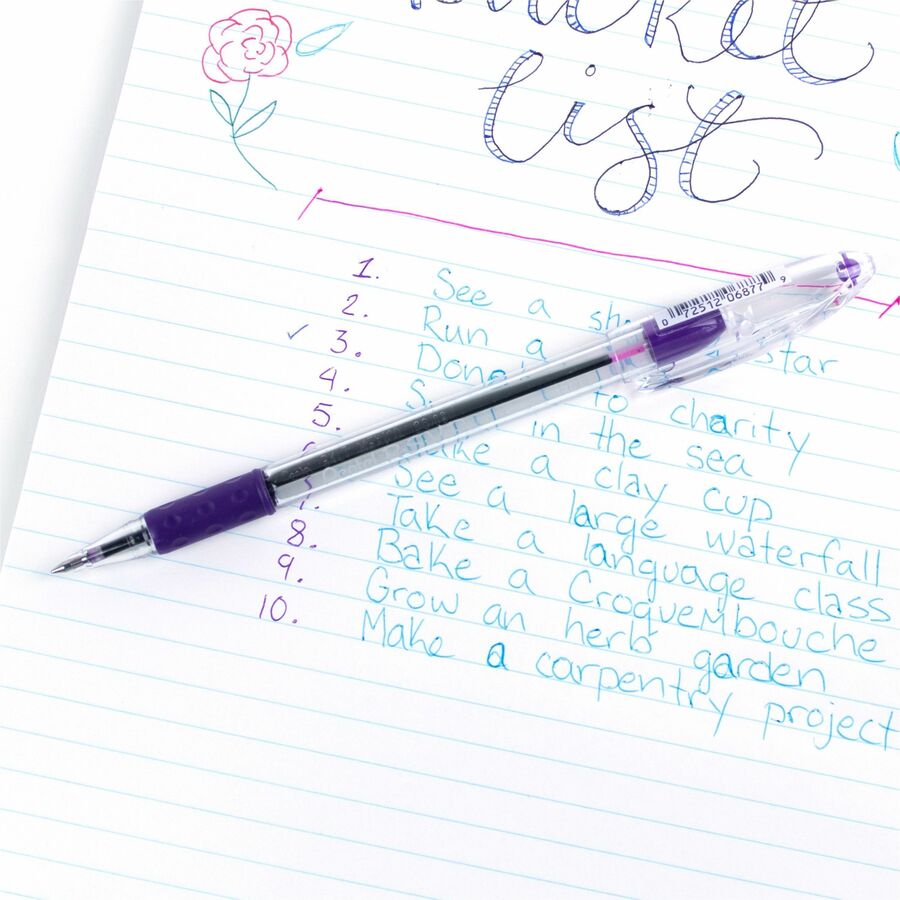 Bucket
list
1. See a star
2. Run a
✓ 3. to charity
4. in the sea
5. Make a clay cup
See a large waterfall
Take a language class
8. Bake a Croquembouche
9. Grow an herb garden
10. Make a carpentry project
0 72512 06877 9